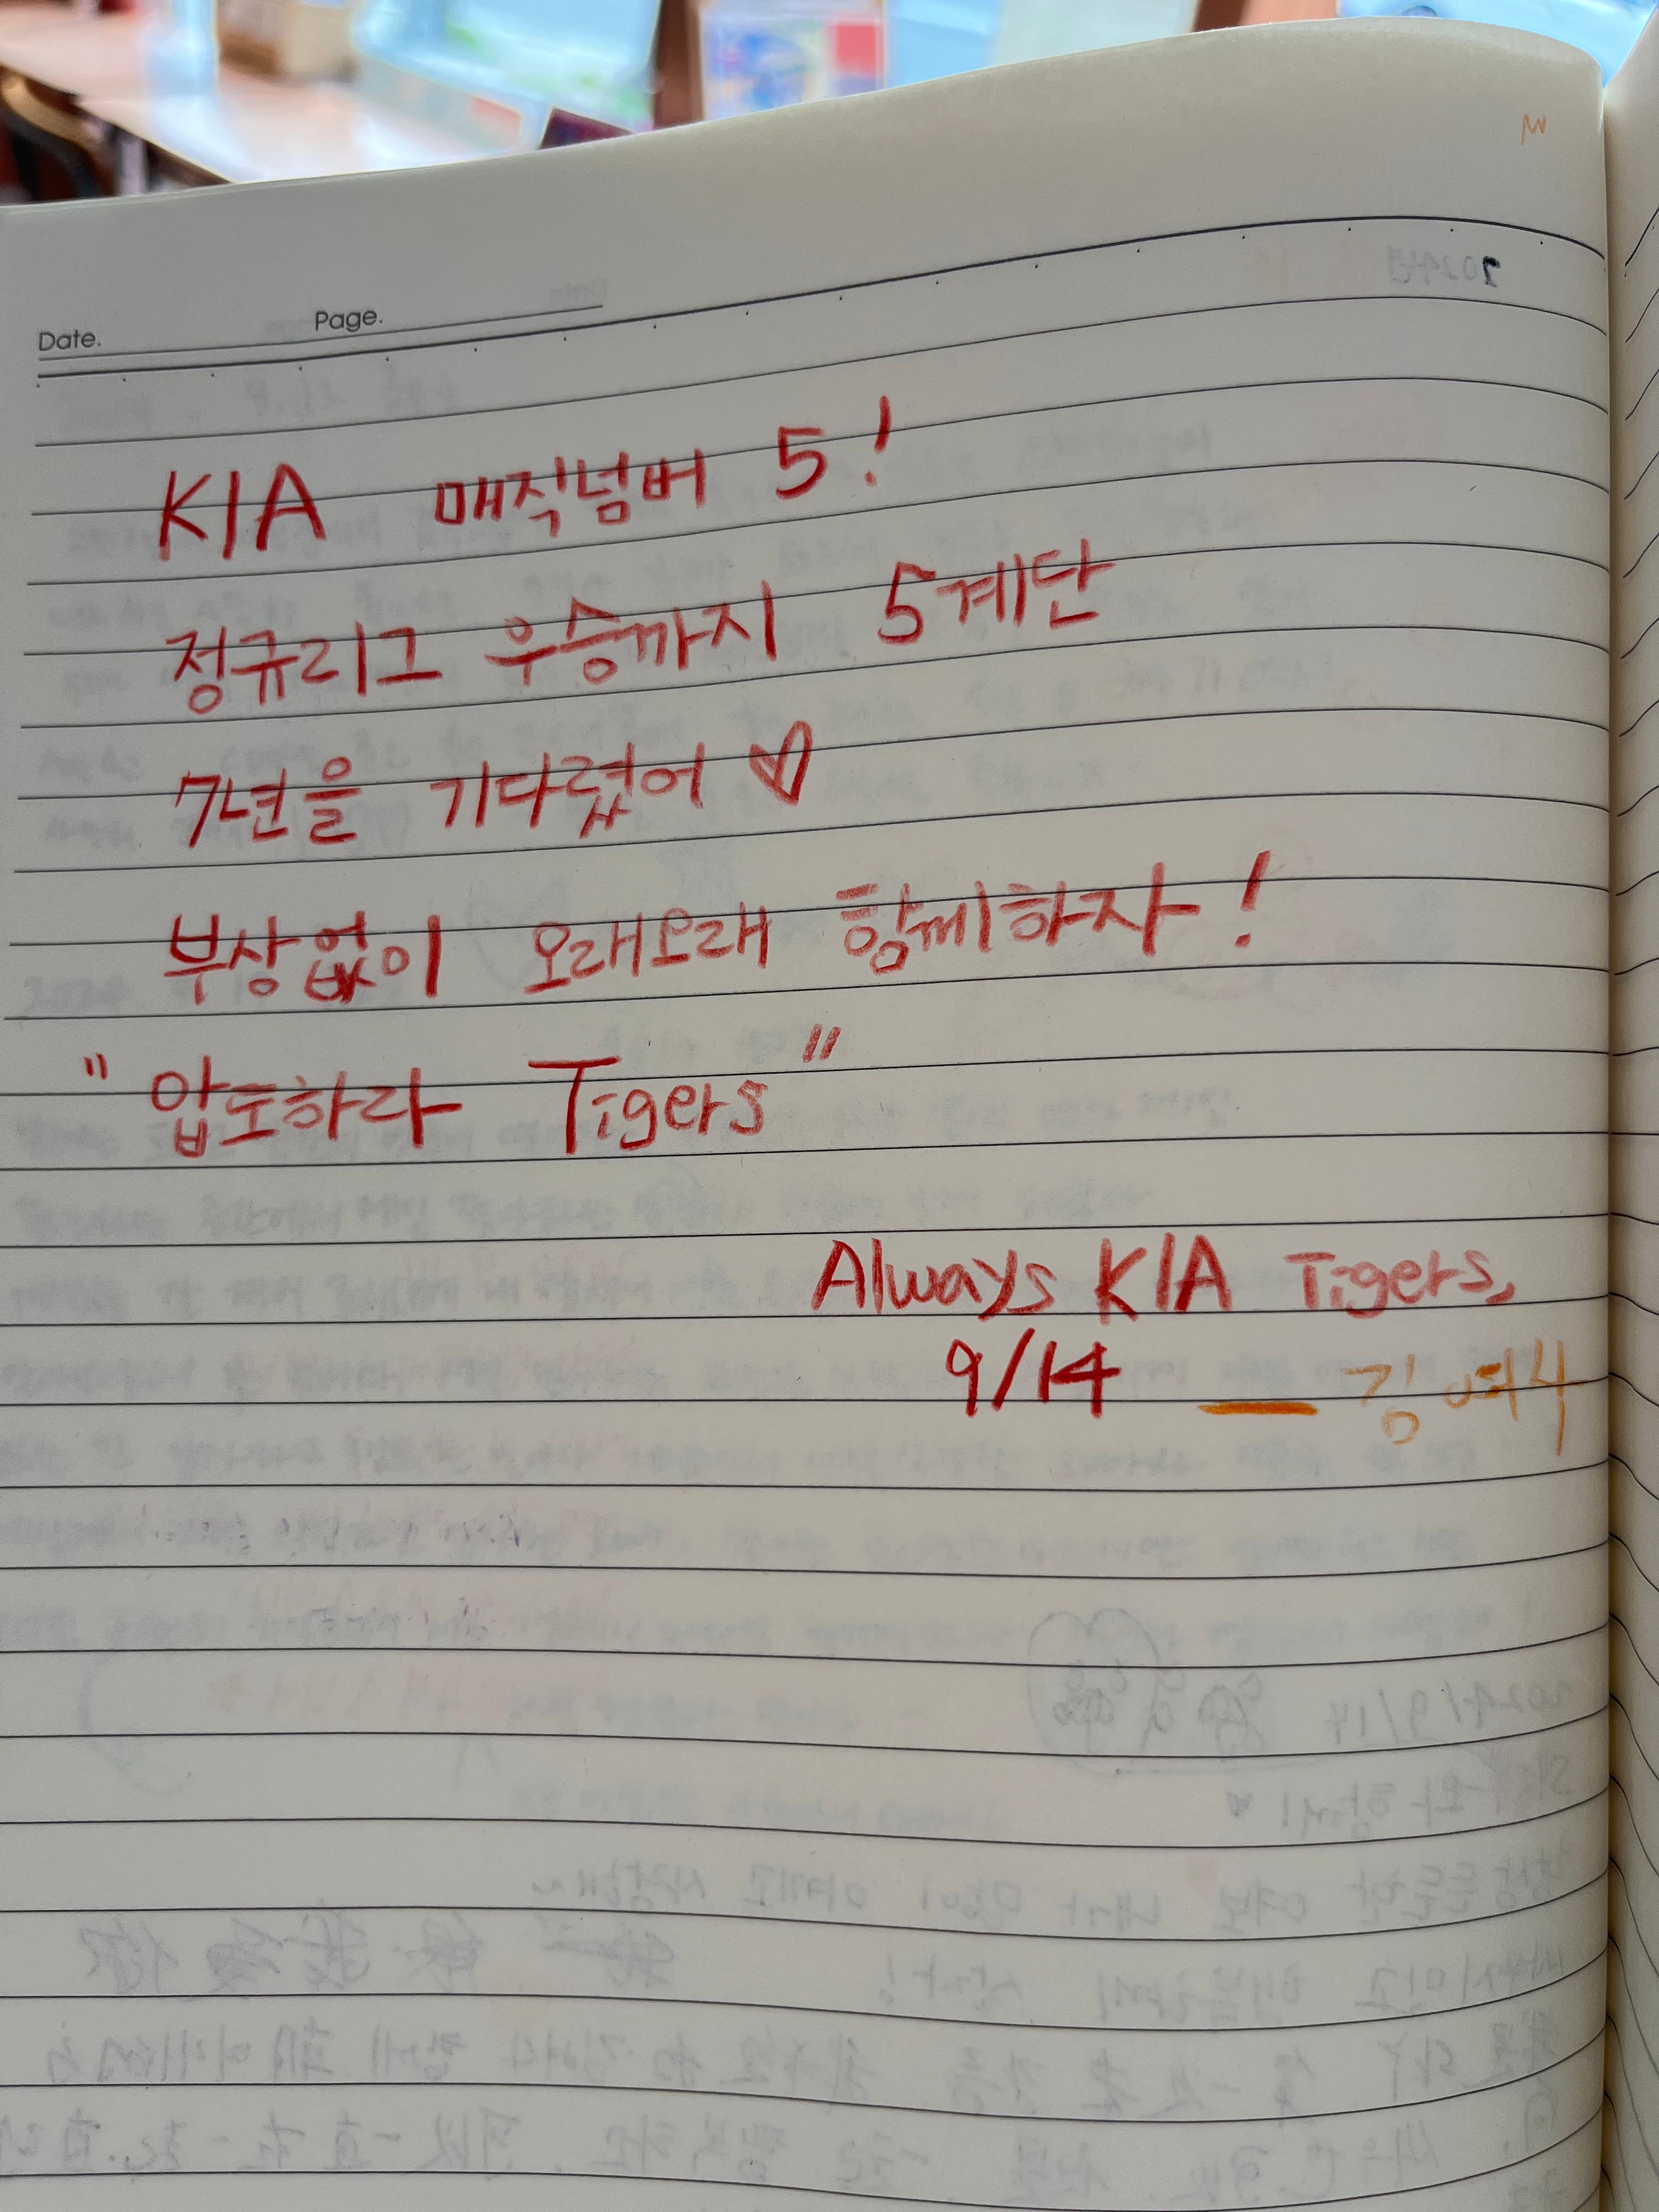 Date. Page.
KIA 매직넘버 5!
정규리그 우승까지 5계단
7년을 기다렸어 ♡
부상없이 오래오래 함께하자!
"압도하라 Tigers"
Always KIA Tigers,
9/14 — 김